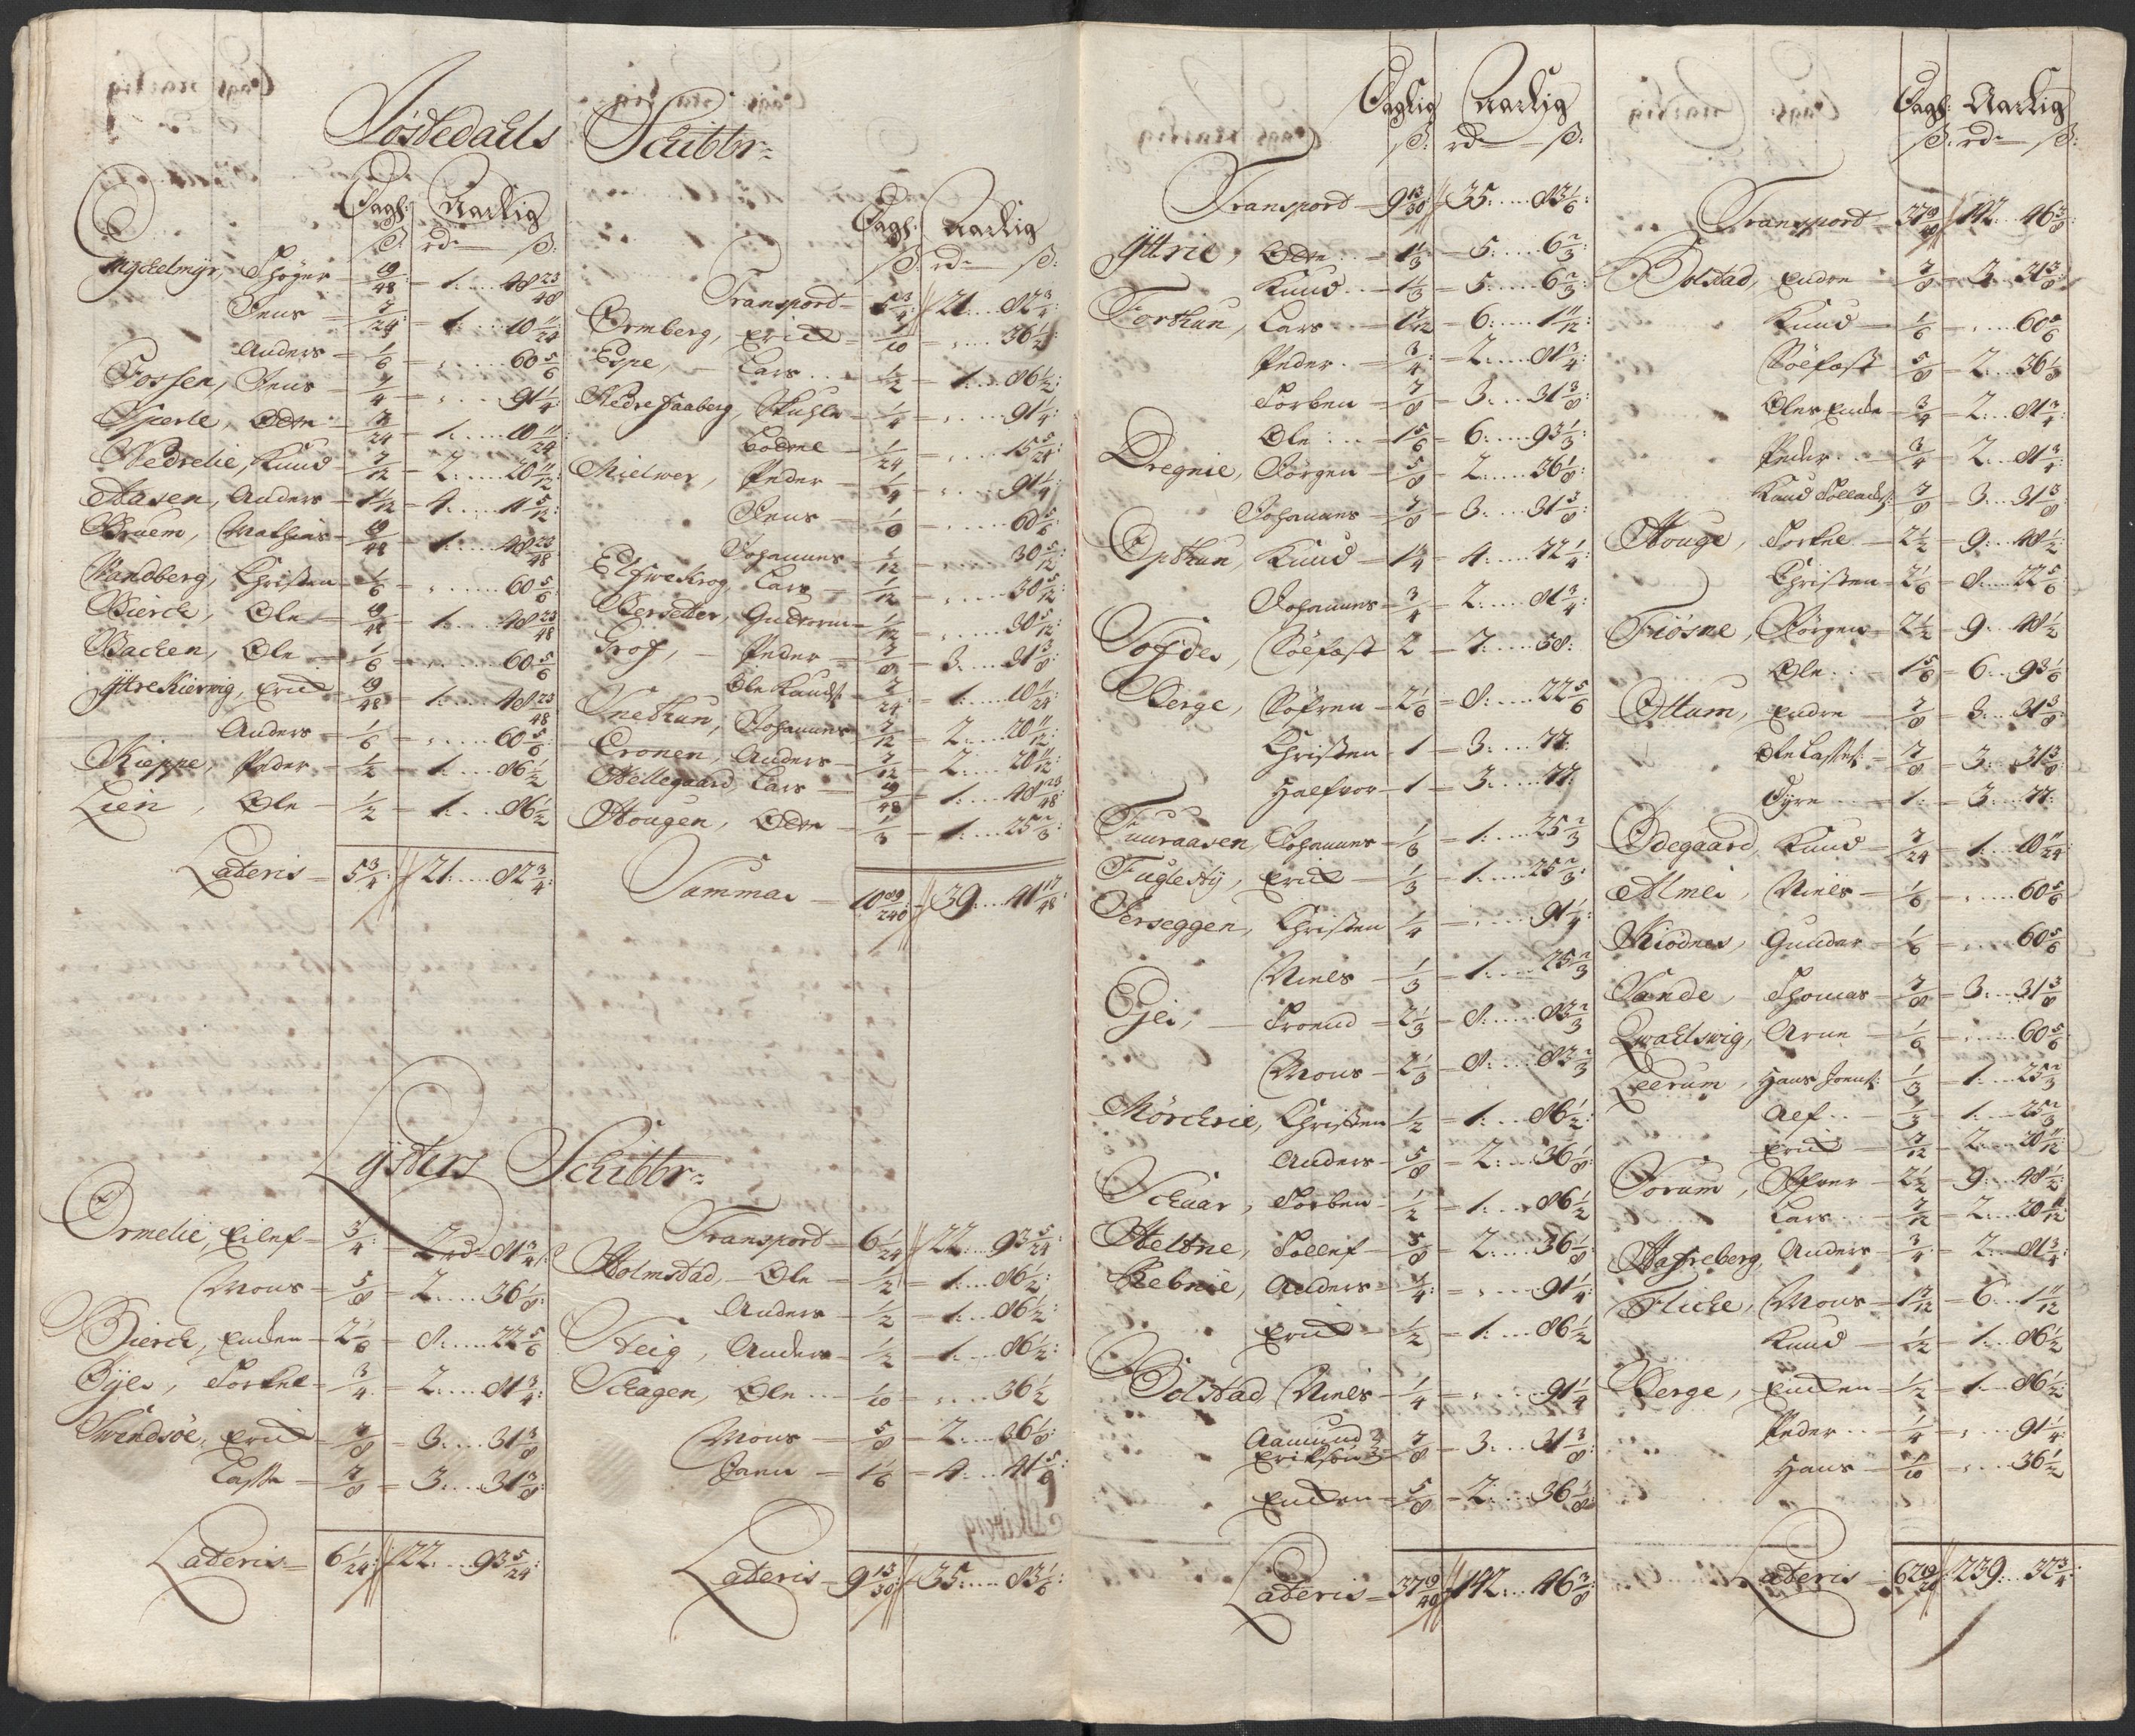 Jostedahls Schibbr:
Dagl: Aarlig
ß: rd— ß:
Myckelmyr, Thøger — 19/48 — 1....48 23/48
Jens — 7/24 — 1....10 11/24
Anders — 1/6 — "....60 5/6
Fossen, Jens — 1/4 — "....91 1/4
Sperle, Odn — 7/24 — 1....10 11/24
Nedrelie, Knud — 7/12 — 2....20 11/12
Aasen, Anders — 1 1/12 — 4....11 5/12
Bruem, Mathias — 19/48 — 1....48 23/48
Sandberg, Christen — 1/6 — "....60 5/6
Bierck, Ole — 19/48 — 1....48 23/48
Backen, Ole — 1/6 — "....60 5/6
Yttre Kierwig, Erich — 19/48 — 1....48 23/48
Anders — 1/6 — "....60 5/6
Kieppe, Peder — 1/2 — 1....86 1/2
Lien, Ole — 1/2 — 1....86 1/2
Lateris — 5 3/4 // 21....82 3/4
Dagl: Aarlig
ß: rd— ß:
Transport — 5 3/4 // 21....82 3/4
Ormberg, Erich — 1/10 — "....36 1/2
Espe, Lars — 1/2 — 1....86 1/2
Nedre Faaberg, — 1/4 — "....91 1/4
— 1/24 — "....15 5/24
Mielwer, Peder — 1/4 — "....91 1/4
Jens — 1/6 — "....60 5/6
Johannes — 1/12 — 30 5/12
Lars — 1/12 — "....30 5/12
Bersetter, Guttorm — 1/12 — "....30 5/12
Grof, Peder — 7/8 — 3....31 3/8
Ole Knuds: — 7/24 — 1....10 11/24
Snethun, Johannes — 7/12 — 2....20 11/12
Cronen, Anders — 7/12 — 2....20 11/12
Hellegaard, Lars — 19/48 — 1....48 23/48
Hougen, Odn — 1/3 — 1....25 2/3
Summa — 10 89/240 — 39....41 17/48
Lysters Schibbr:
Ormelie, Eilef — 3/4 — 2 rd 81 3/4 ß
Mons — 5/8 — 2....36 1/8
Bierck, Endre — 2 1/6 — 8....22 5/6
Øjes, Torkel — 3/4 — 2....81 3/4
Svendsøe, Erich — 7/8 — 3....31 3/8
Lasse — 7/8 — 3....31 3/8
Lateris — 6 1/24 // 22....93 5/24
Transport — 6 1/24 // 22....93 5/24
Holmstad, Ole — 1/2 — 1....86 1/2
Anders — 1/2 — 1....86 1/2
Steig, Anders — 1/2 — 1....86 1/2
Schagen, Ole — 1/10 — "....36 1/2
Mons — 5/8 — 2....36 1/8
— 1 1/6 — 4....41 5/6
Lateris — 9 13/30 // 35....83 1/6
Daglig Aarlig
ß: rd— ß:
Transport — 9 13/30 // 35....83 1/6
Yttrie, Odn — 1 1/3 — 5....6 2/3
Knud — 1 1/3 — 5....6 2/3
Forthun, Lars — 1 7/12 — 6....1 11/12
Peder — 3/4 — 2....81 3/4
Torben — 7/8 — 3....31 3/8
Ole — 1 5/6 — 6....93 1/3
Dregnie, Jørgen — 5/8 — 2....36 1/8
Johannes — 7/8 — 3....31 3/8
Opthun, Knud — 1 1/4 — 4....72 1/4
Johannes — 3/4 — 2....81 3/4
Søelfast 2 — 7....58:
Berge, Søfren — 2 1/6 — 8....22 5/6
Christen — 1 — 3....77:
Halfvor — 1 — 3....77:
Fuuraasen, Johannes — 1/3 — 1....25 2/3
Fuglestÿ, Erich — 1/3 — 1....25 2/3
Berseggen, Christen — 1/4 — "....91 1/4
Niels — 1/3 — 1....25 2/3
Eje, Troend — 2 1/3 — 8....83 2/3
Mons — 2 1/3 — 8....83 2/3
Mørchrie, Christen — 1/2 — 1....86 1/2
Anders — 5/8 — 2....36 1/8
Schaar, Torben — 1/2 — 1....86 1/2
Heltne, Tollef — 5/8 — 2....36 1/8
Rebnie, Anders — 1/4 — "....91 1/4
Erich — 1/2 — 1....86 1/2
Bolstad, Niels — 1/4 — "....91 1/4
Aamund Erikson — 7/8 — 3....31 3/8
Endre — 5/8 — 2....36 1/8
Lateris — 37 19/40 // 142....46 3/8
Dagl: Aarlig
ß: rd— ß:
Transport — 37 19/40 // 142....46 3/8
Bolstad, Endre — 7/8 — 3....31 3/8
Knud — 1/6 — "....60 5/6
Søelfast — 5/8 — 2....36 1/8
Ole — 3/4 — 2....81 3/4
Peder — 3/4 — 2....81 3/4
Knud — 7/8 — 3....31 3/8
Houge, Torkel — 2 1/2 — 9....48 1/2
Christen — 2 1/6 — 8....22 5/6
Fiøsne, Jørgen — 2 1/2 — 9....48 1/2
Ole — 1 5/6 — 6....93 1/6
Ottum, Endre — 7/8 — 3....31 3/8
Ole Lasses: — 7/8 — 3....31 3/8
— 1 — 3....77:
Ødegaard, Knud — 7/24 — 1....10 11/24
Alme, Niels — 1/6 — "....60 5/6
Kiødnes, Gunder — 1/6 — "....60 5/6
Sande, Thomas — 7/8 — 3....31 3/8
Qwahlswig, Arne — 1/6 — "....60 5/6
Leerum, Hans Joens: — 1/3 — 1....25 2/3
Alf — 1/3 — 1....25 2/3
Erich — 7/12 — 2....20 11/12
Sorum, — 2 1/2 — 9....48 1/2
Lars — 7/12 — 2....20 11/12
Hafreberg, Anders — 3/4 — 2....81 3/4
Fliche, Mons — 1 7/12 — 6....1 11/12
Knud — 1/2 — 1....86 1/2
Berge, Endre — 1/2 — 1....86 1/2
Peder — 1/4 — "....91 1/4
Hans — 1/10 — "....36 1/2
Lateris — 62 19/20 // 239....32 3/4